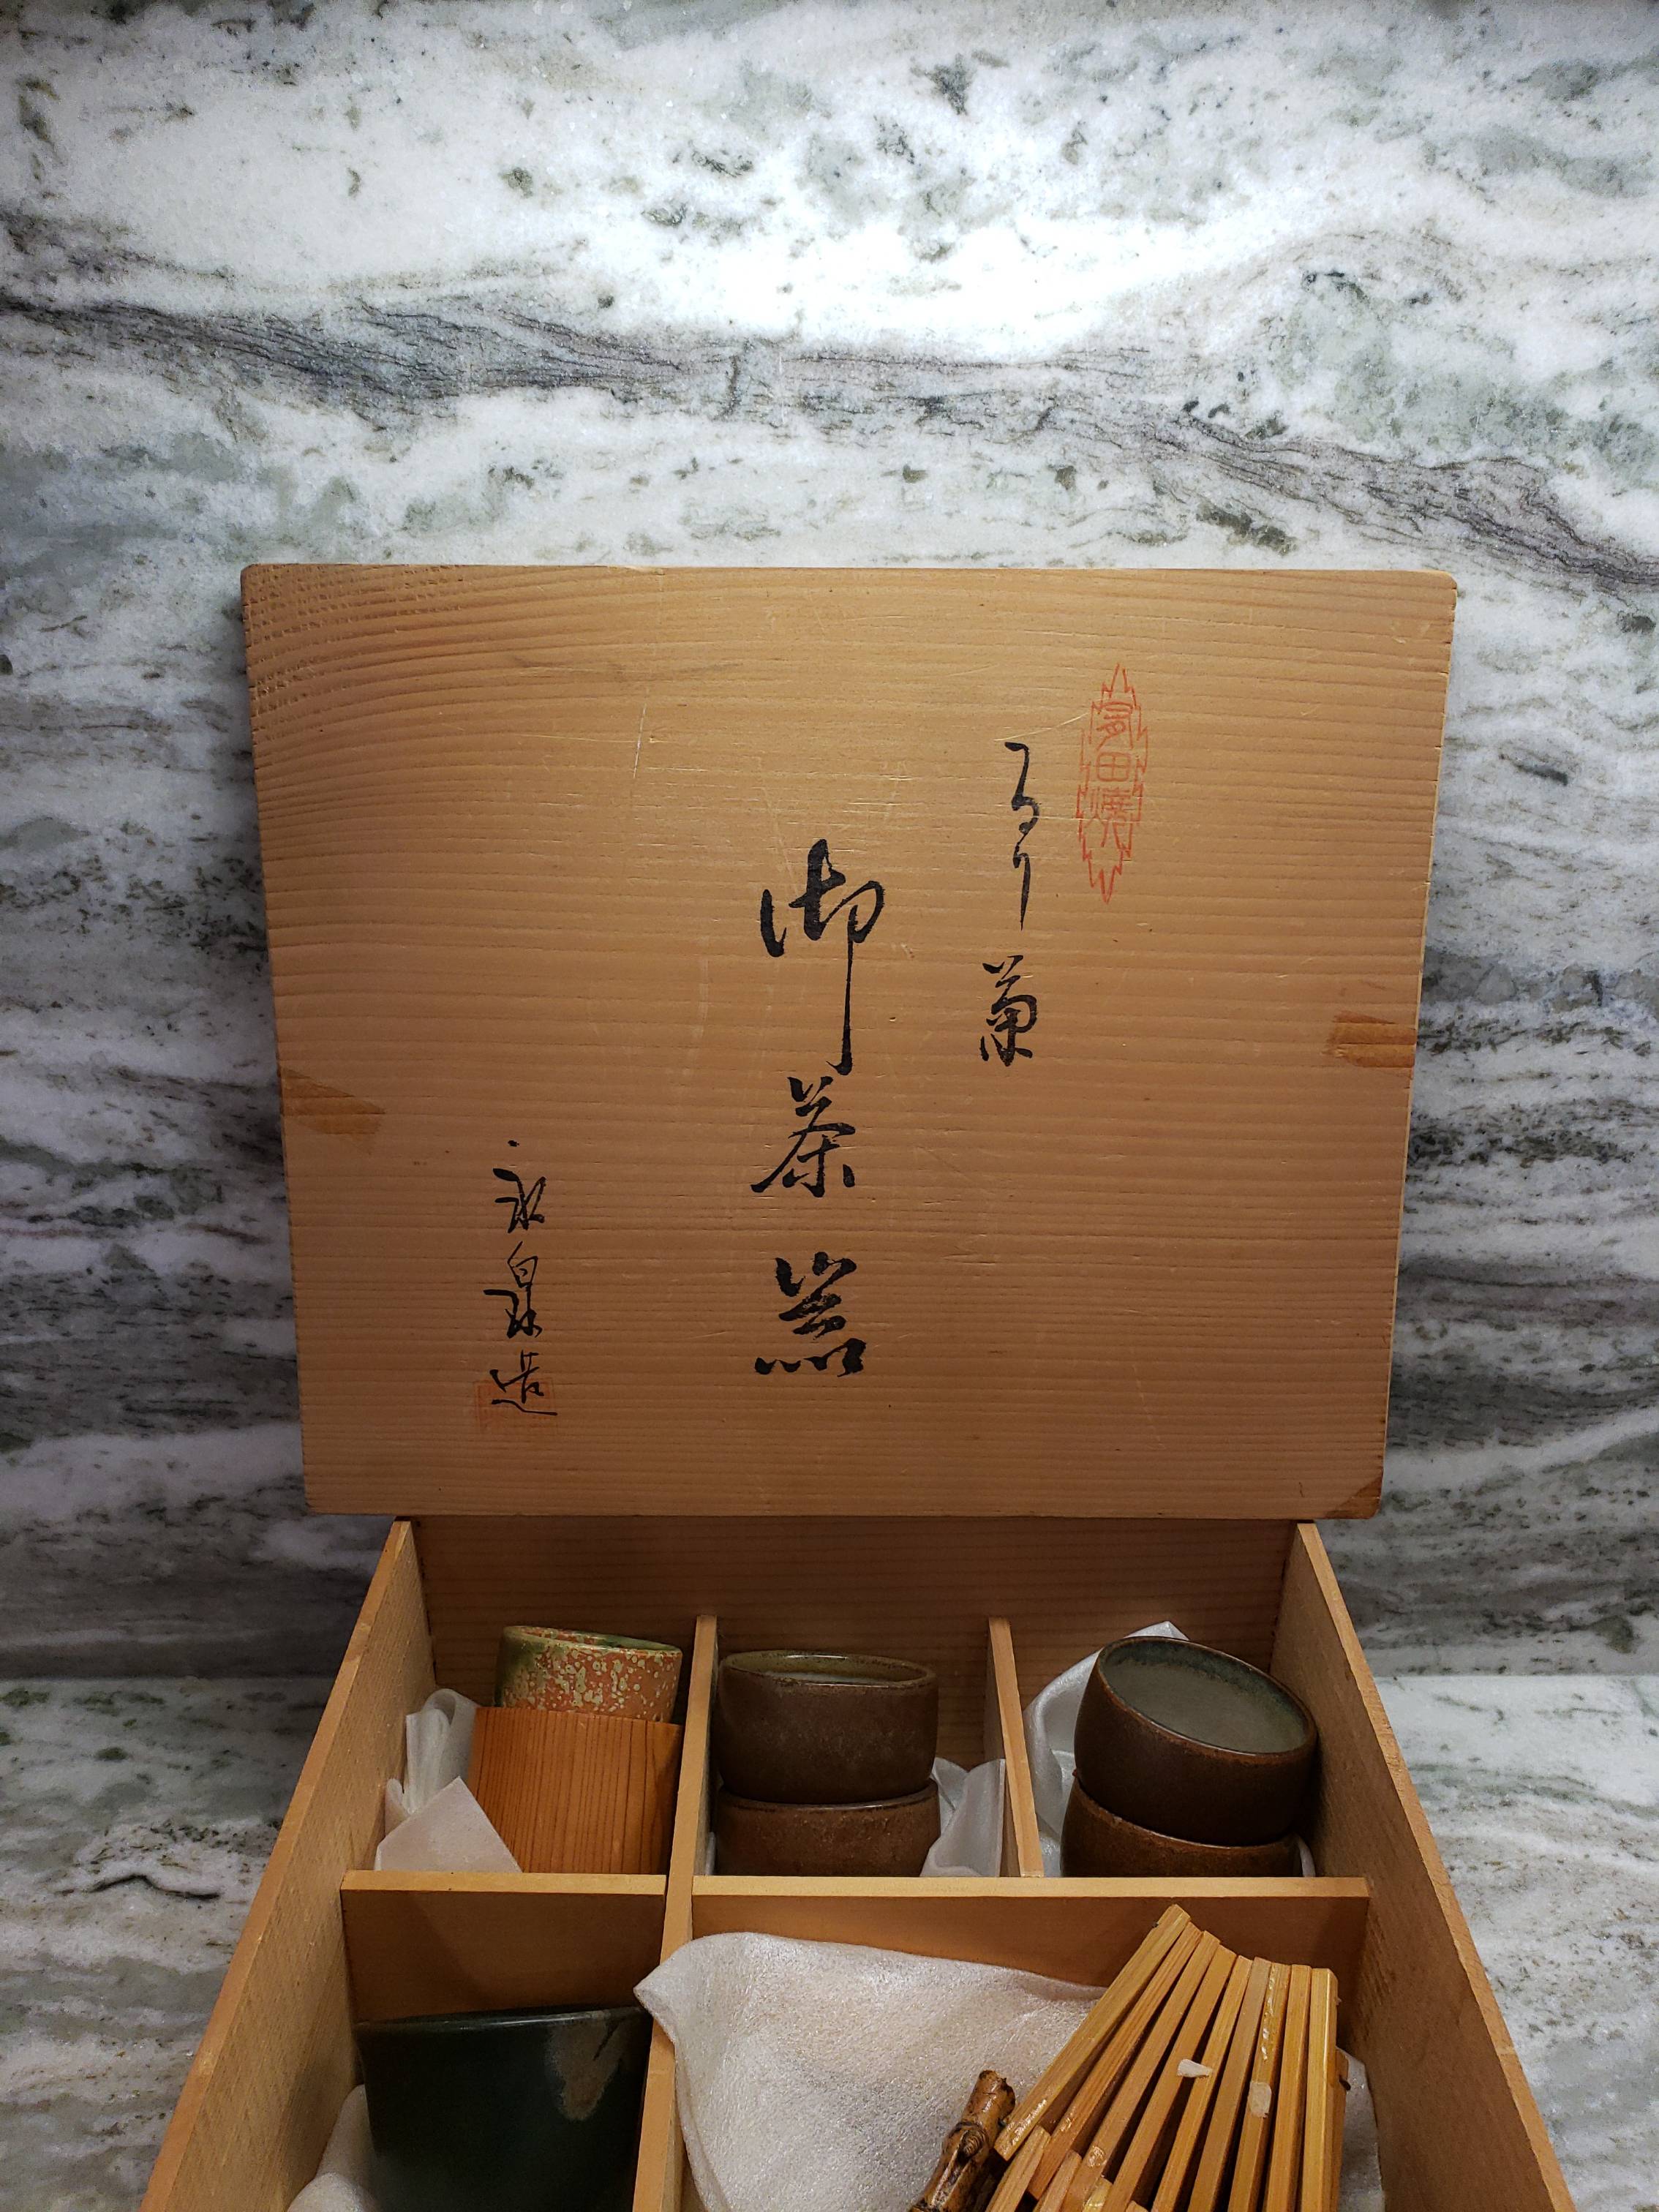 多田焼
るり
御茶器
永泉造